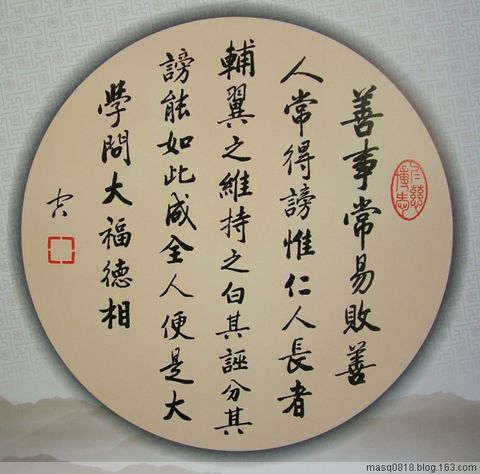 善事常易敗善
人常得謗惟仁人長者
輔翼之維持之白其誣分其
謗能如此成全人便是大
学問大福德相
masq0818.blog.163.com